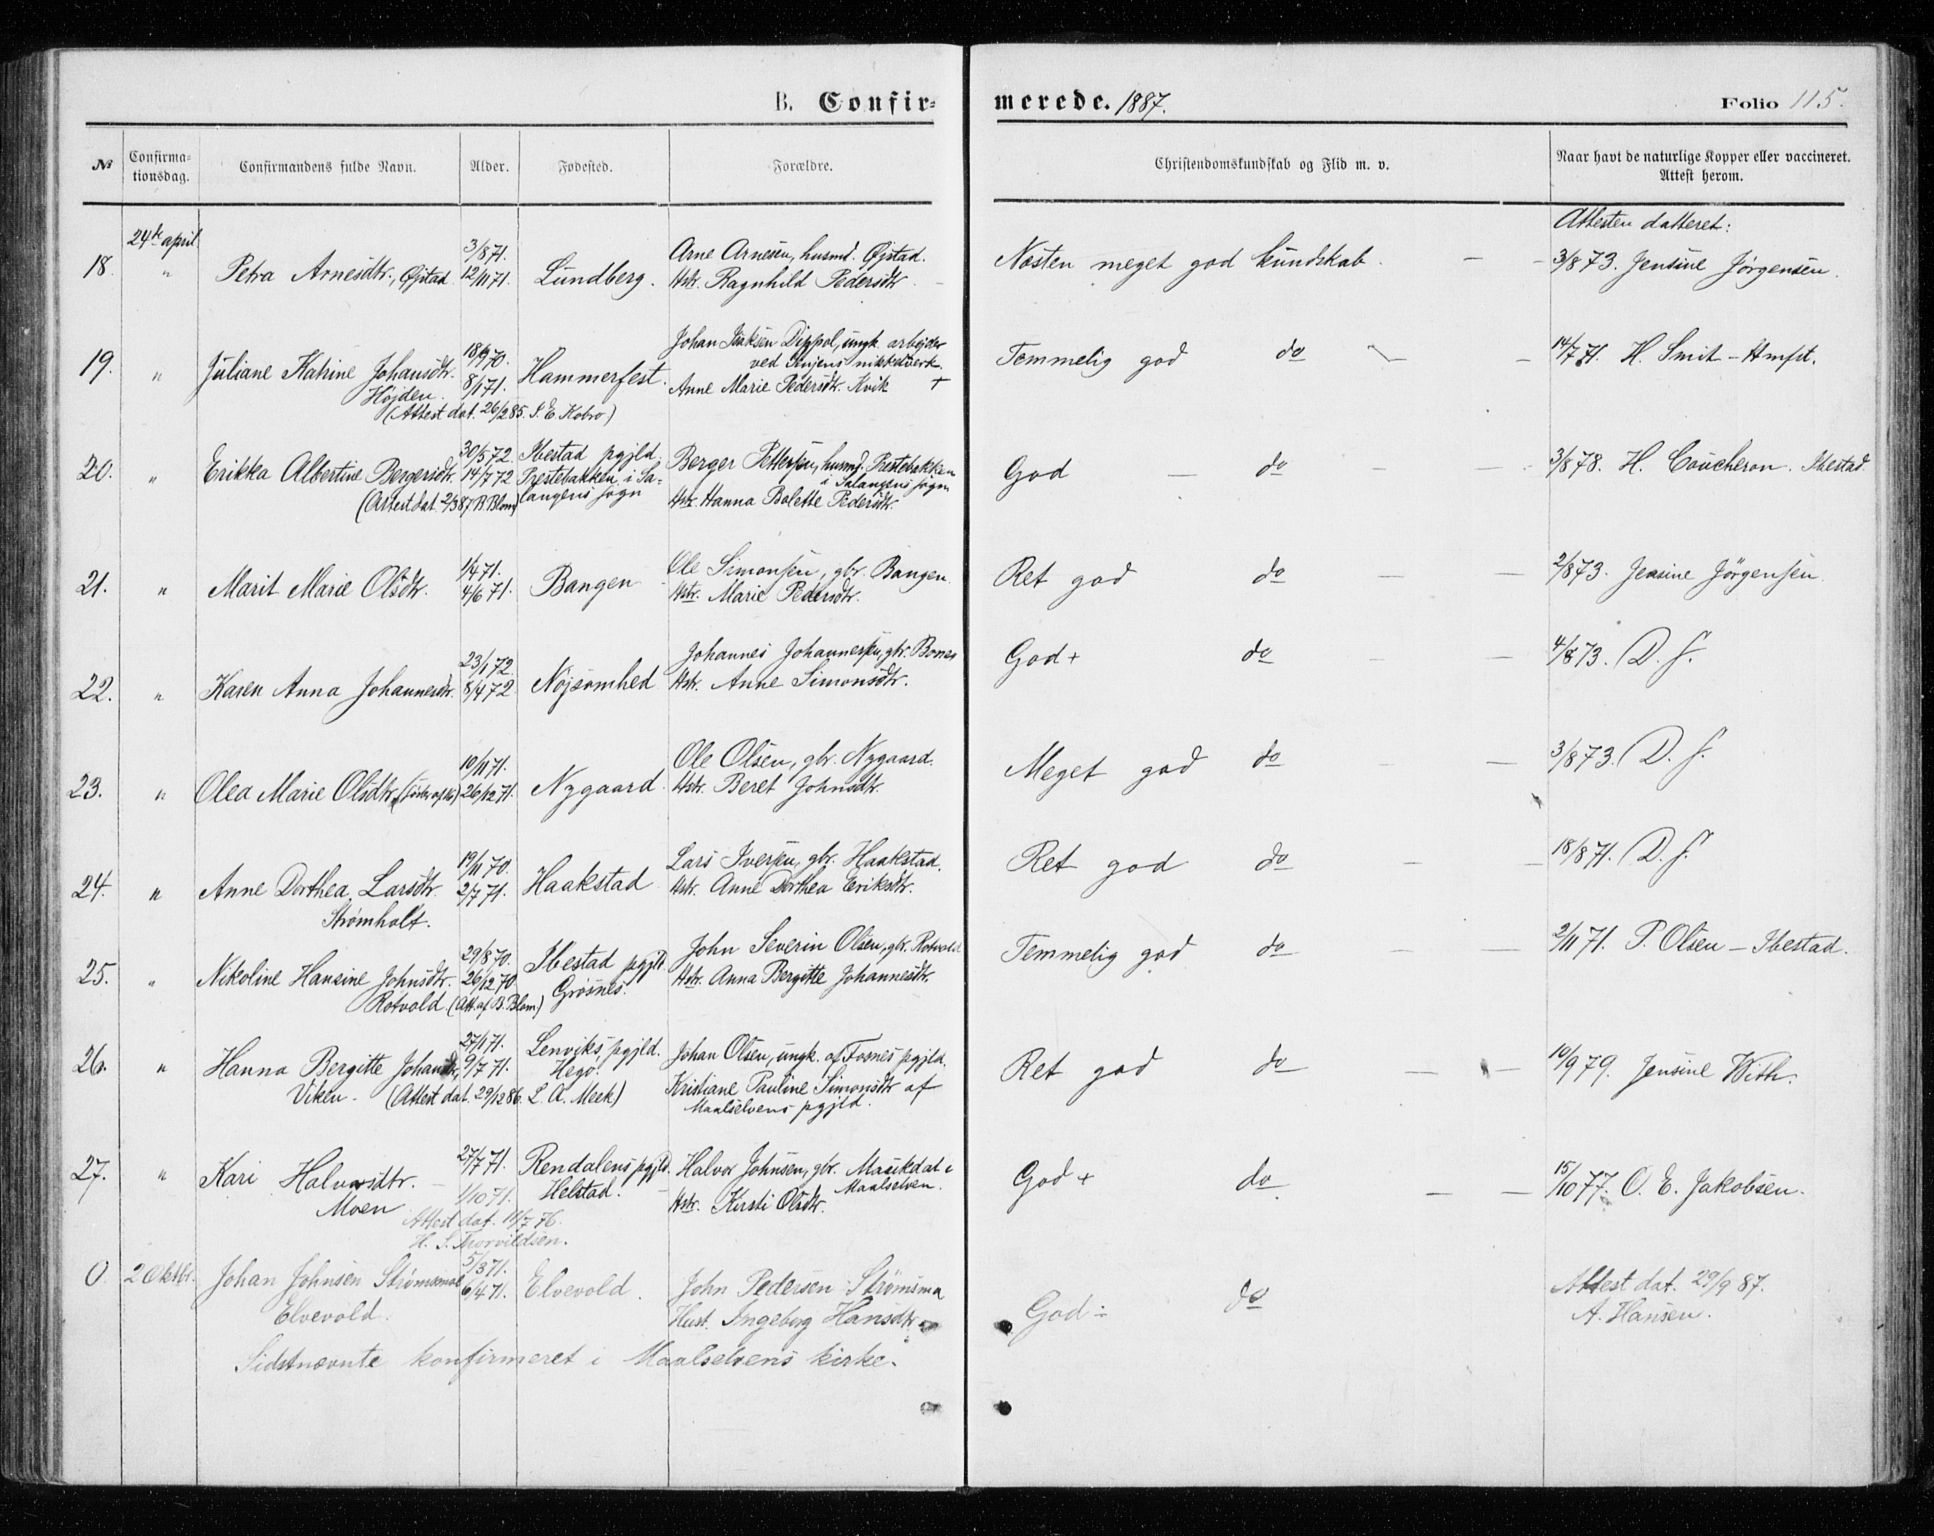 B. Confir-
merede. 1887.
Folio 115.
№
Confirma-
tionsdag.
Confirmandens fulde Navn.
Alder.
Fødested.
Forældre.
Christendomskundskab og Flid m. v.
Naar havt de naturlige Kopper eller vaccineret.
Attest herom.
24de april
Attesten datteret:
18. " Petra Arnesdtr., Øjstad
3/8 71.
12/11 71.
Lundberg.
Arne Arnesen, husmd. Øjstad.
Hstr. Ragnhild Pedersdtr.
Næsten meget god kundskab. — —
3/8 73. Jensine Jørgensen.
19. " Juliane Katrine Johansdtr.
Højden.
(Attest dat. 26/2 85. S. E. Kobro)
18/9 70.
8/1 71.
Hammerfest.
Johan Isaksen Dippol, ungk. arbejder
ved Sinjens nikkelverk.
Anne Marie Pedersdtr. Kvik +
Temmelig god do —
14/7 71. H. Smit - Hmfst.
20. " Erikka Albertine Bergersdtr.
(Attest dat. 2/3 87 B. Blom)
30/5 72.
14/7 72
Ibestad pgjld.
Prestebakken i Sa-
langens sogn
Berger Pettersen, husmd. Prestebakken
i Salangens sogn
Hstr. Hanna Bolette Pedersdtr.
God — do — —
3/8 78. H. Coucheron. Ibestad
21. " Marit Marie Olsdtr.
1/4 71.
4/6 71.
Bangen
Ole Simonsen, gbr. Bangen.
Hstr. Marie Pedersdtr.
Ret god do — —
2/8 73. Jensine Jörgensen
22. " Karen Anna Johannesdtr.
23/1 72
8/4 72
Nøjsomhed
Johannes Johannessen, gbr. Bones
Hstr. Anne Simonsdtr.
God + do — —
4/8 73. D. S.
23. " Olea Marie Olsdtr.
10/11 71.
26/12 71.
Nygaard.
Ole Olsen, gbr. Nygaard.
Hstr. Beret Johnsdtr.
Meget god do — —
3/8 73. D. S.
24. " Anne Dorthea Larsdtr.
Strømholt.
19/11 70.
2/7 71.
Haakstad
Lars Iversen, gbr. Haakstad.
Hstr. Anne Dorthea Eriksdtr.
Ret god do — —
18/8 71. D. S.
25. " Nikoline Hansine Johnsdtr.
Rotvold. (Att. af B. Blom)
29/8 70.
26/12 70.
Ibestad pgjld.
Grösnes.
John Severin Olsen, gbr. Rotvold
Hstr. Anna Bergitte Johannesdtr.
Temmelig god do — —
2/11 71. P. Olsen — Ibestad.
26. " Hanna Bergitte Johansdtr.
Viken. (Attest dat. 29/12 86. L. A. Meek)
27/1 71.
9/7 71.
Lenviks pgjld.
Hegö.
Johan Olsen, ungk. af Fosnes pgjld.
Kristiane Pauline Simonsdtr af
Maalselvens pgjld.
Ret god do — —
10/9 79. Jensine With.
27. " Kari Halvorsdtr.
Moen
27/7 71.
1/10 71.
Attest dat. 11/7 76.
H. S. Thorvildsen.
Rendalens pgjld.
Helstad.
Halvor Johnsen, gbr. Maukdal i
Maalselven.
Hstr. Kirsti Olsdtr.
God + do — —
15/10 77. O. E. Jakobsen.
0. 2 Oktbr. Johan Johnsen Strømsmoe
Elvevold.
5/3 71.
6/4 71.
Elvevold.
John Pedersen Strømsmo
Hust. Ingeborg Hansdtr.
God ÷ do
Attest dat. 29/9 87.
A. Hansen.
Sidstnævnte konfirmeret i Maalselvens kirke.